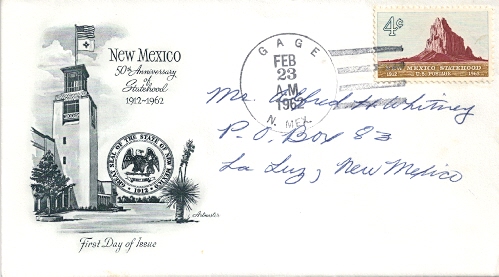 New Mexico
50th Anniversary
of
Statehood
1912-1962
GREAT SEAL OF THE STATE OF NEW MEXICO
1912
Artmaster
First Day of Issue
GAGE
FEB
23
A.M.
1962
N. MEX.
4¢
NEW MEXICO STATEHOOD
1912 U.S. POSTAGE 1962
Mr. Alfred H. Whitney
P.O. Box 83
La Luz, New Mexico